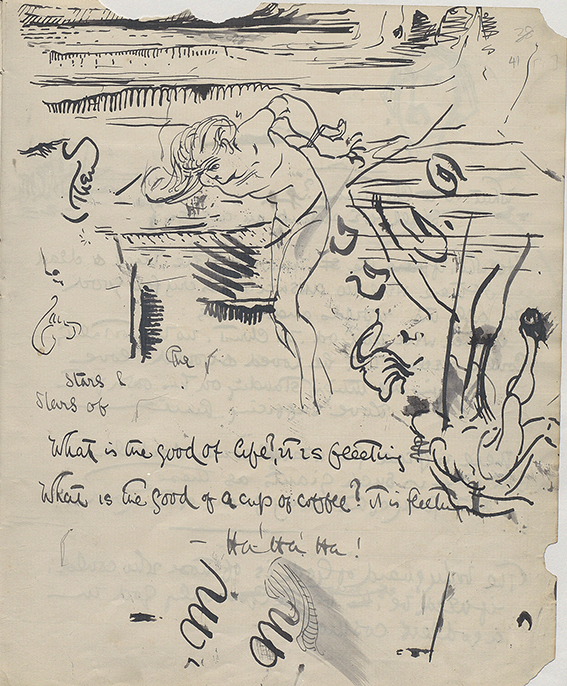 38
41
Stars &
Stars of
What is the good of life? it is fleeting
What is the good of a cup of coffee? it is
– Ha! Ha! Ha!